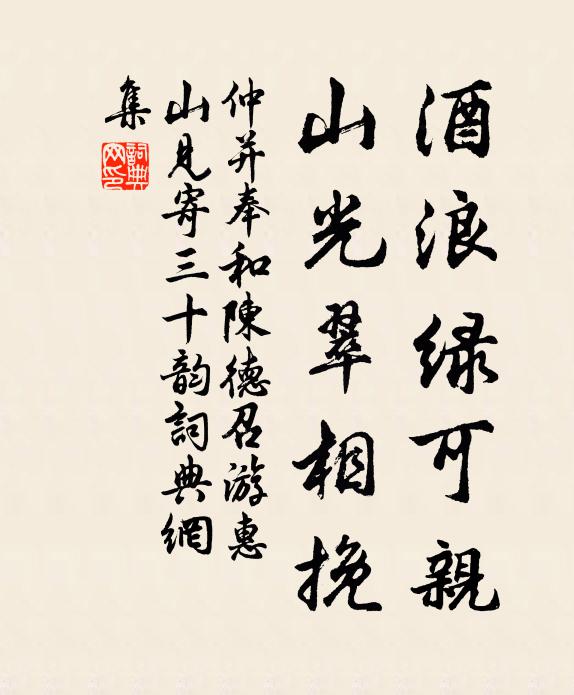 酒浪绿可親
山光翠相挽
仲并奉和陳德召游惠
山見寄三十韵詞典網
集
詞典
网印